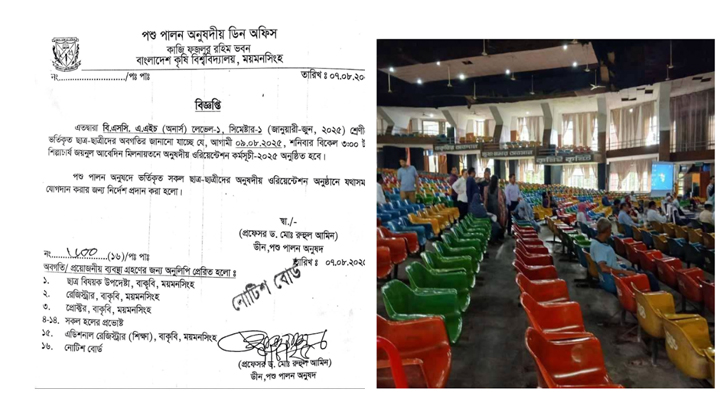 পশু পালন অনুষদীয় ডিন অফিস
কাজি ফজলুর রহিম ভবন
বাংলাদেশ কৃষি বিশ্ববিদ্যালয়, ময়মনসিংহ
নং............................/পঃ পাঃ
তারিখ ঃ ০৭.০৮.২০
বিজ্ঞপ্তি
এতদ্বারা বি.এসসি. এ.এইচ (অনার্স) লেভেল-১, সিমেষ্টার-১ (জানুয়ারী-জুন, ২০২৫) শ্রেণী
ভর্তিকৃত ছাত্র-ছাত্রীদের অবগতির জানানো যাচ্ছে যে, আগামী ০৯.০৮.২০২৫, শনিবার বিকেল ৩:০০ ট
শিল্পাচার্য জয়নুল আবেদিন মিলনায়তনে অনুষদীয় ওরিয়েন্টেশন কর্মসূচী-২০২৫ অনুষ্ঠিত হবে।
পশু পালন অনুষদে ভর্তিকৃত সকল ছাত্র-ছাত্রীদের অনুষদীয় ওরিয়েন্টেশন অনুষ্ঠানে যথাসম
যোগদান করার জন্য নির্দেশ প্রদান করা হলো।
স্বা./-
(প্রফেসর ড. মোঃ রুহুল আমিন)
ডীন, পশু পালন অনুষদ
নং ১৮০০ (১৬)/পঃ পাঃ
তারিখ ঃ ০৭.০৮.২০
অবগতি/ প্রয়োজনীয় ব্যবস্থা গ্রহণের জন্য অনুলিপি প্রেরিত হলো ঃ
১. ছাত্র বিষয়ক উপদেষ্টা, বাকৃবি, ময়মনসিংহ
২. রেজিস্ট্রার, বাকৃবি, ময়মনসিংহ
৩. প্রোক্টর, বাকৃবি, ময়মনসিংহ
৪-১৪. সকল হলের প্রভোষ্ট
১৫. এডিশনাল রেজিস্ট্রার (শিক্ষা), বাকৃবি, ময়মনসিংহ
১৬. নোটিশ বোর্ড
নোটিশ বোর্ড
(প্রফেসর ড. মোঃ রুহুল আমিন)
ডীন, পশু পালন অনুষদ